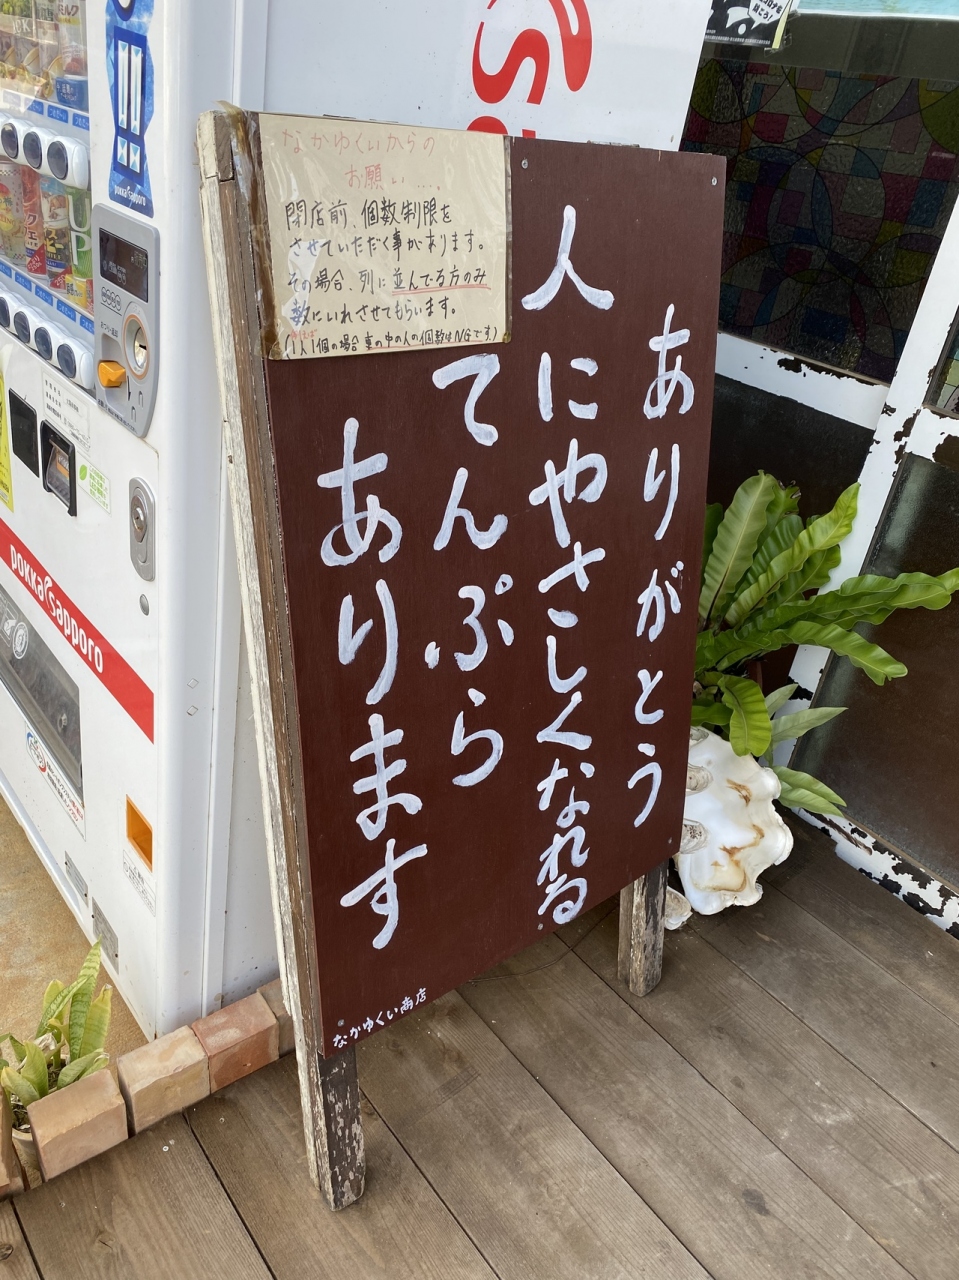 なかゆくいからの
お願い…。
閉店前、個数制限を
させていただく事があります。
その場合、列に並んでる方のみ
数にいれさせてもらいます。
(1人1個の場合車の中の人の個数はNGです)
ありがとう
人にやさしくなれる
てんぷら
あります
なかゆくい商店
pokka sapporo
pokka sapporo